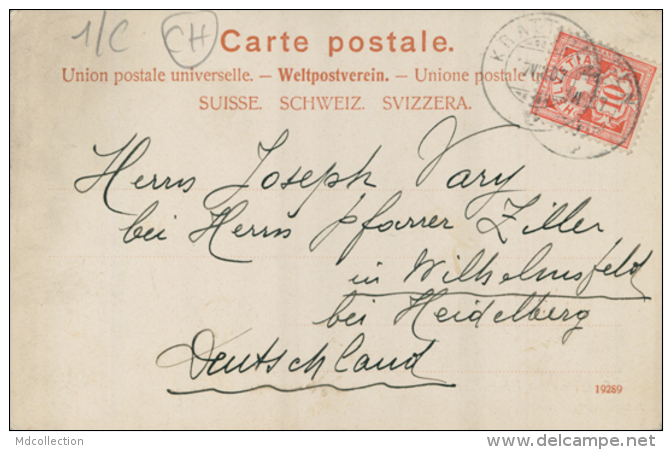 1/C CH
Carte postale.
Union postale universelle. — Weltpostverein. — Unione postale
SUISSE. SCHWEIZ. SVIZZERA.
HELVETIA
10
Herrn Joseph Vary
bei Herrn Pfarrer Ziller
in Wilhelmsfeld
bei Heidelberg
Deutschland
19289
Mdcollection
delcampe.net